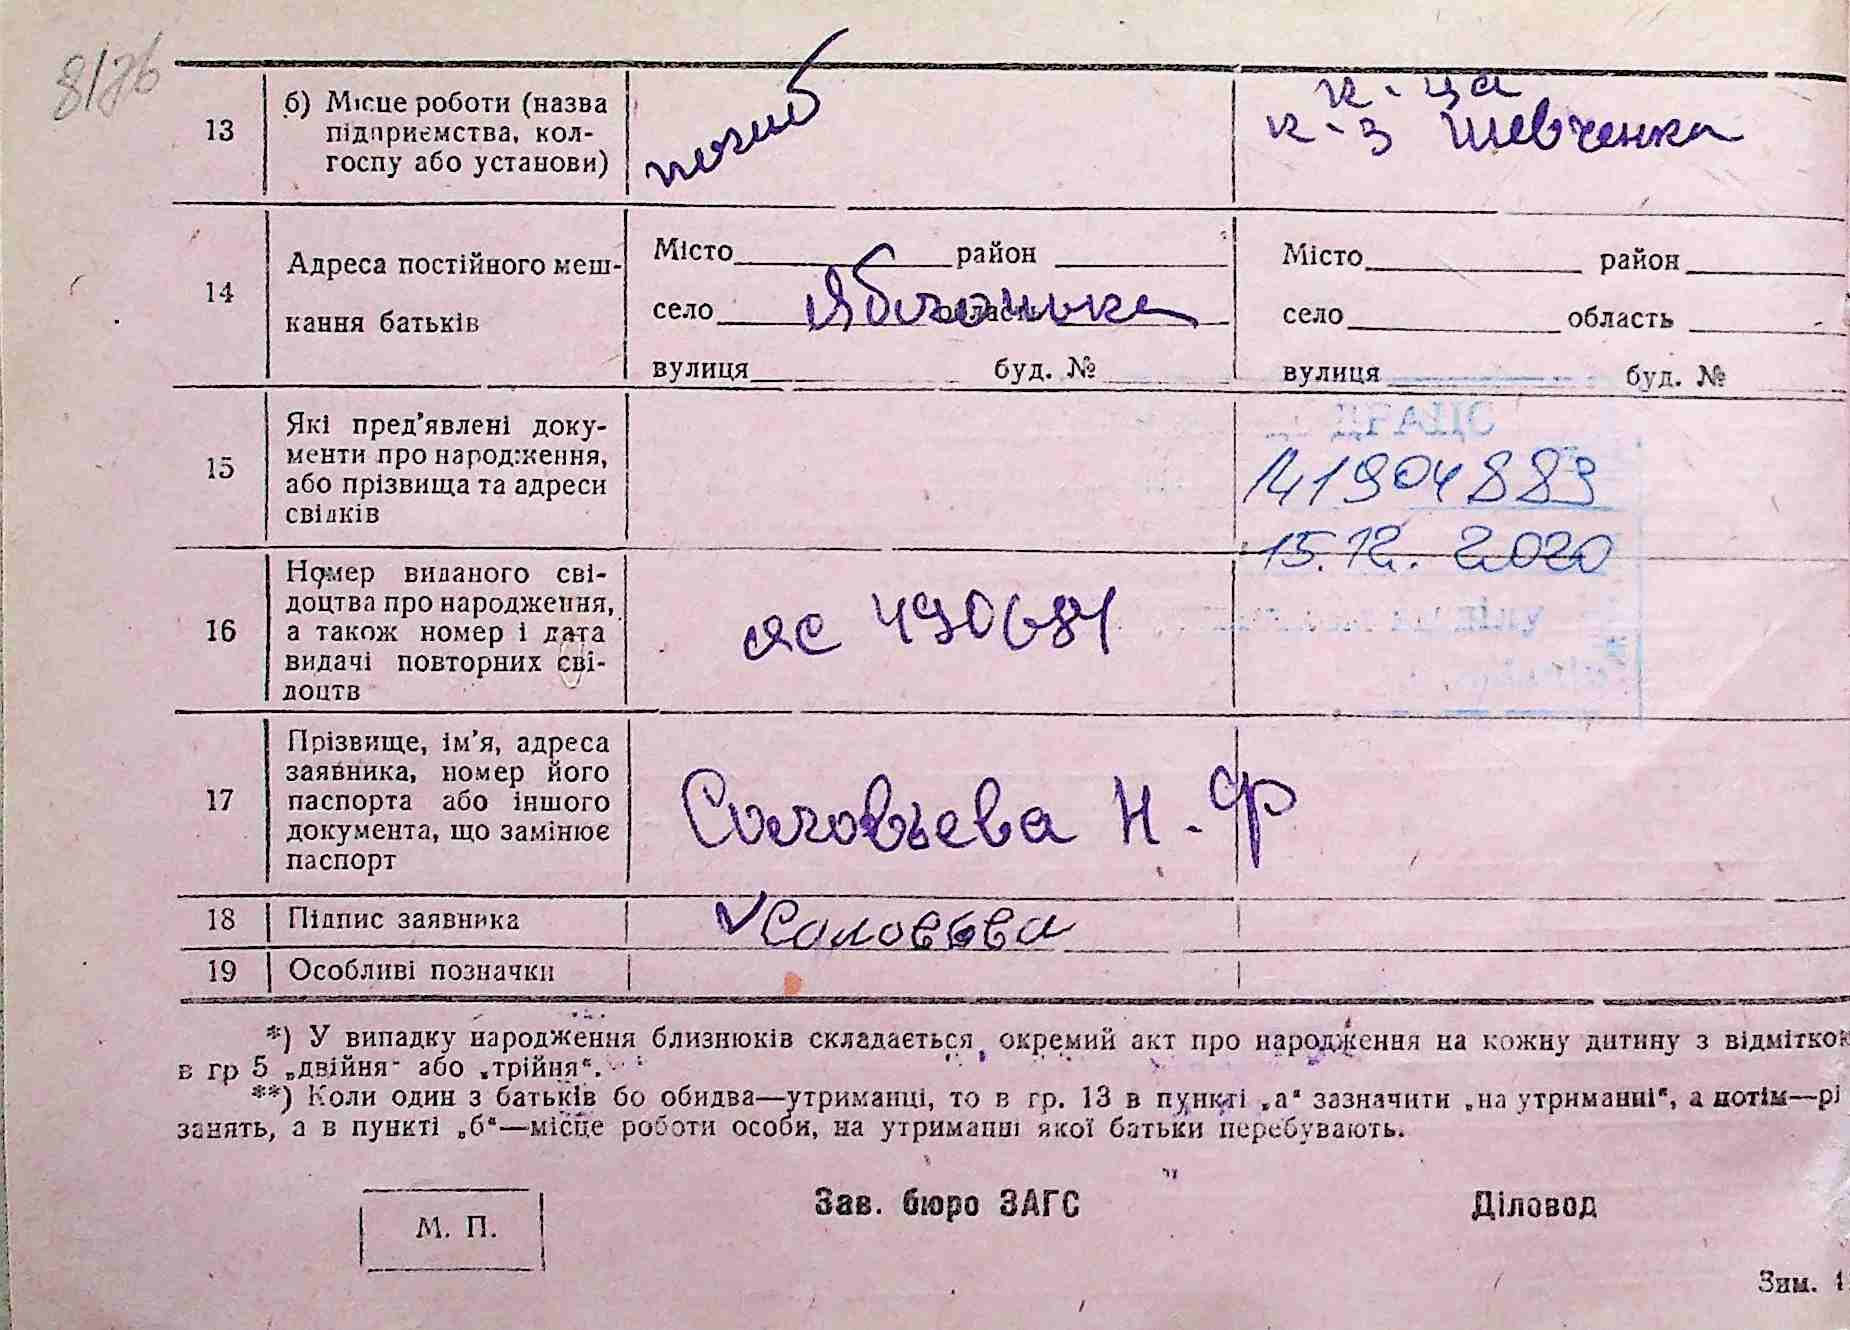 13
б) Місце роботи (назва
підприємства, кол-
госпу або установи)
погиб
к-ца
к-з Шевченка
14
Адреса постійного меш-
кання батьків
Місто район
село Яблонька область
вулиця буд. №
Місто район
село область
вулиця буд. №
15
Які пред'явлені доку-
менти про народження,
або прізвища та адреси
свідків
41904883
15.12.2020
16
Номер виданого сві-
доцтва про народження,
а також номер і дата
видачі повторних сві-
доцтв
ЯС 490684
17
Прізвище, ім'я, адреса
заявника, номер його
паспорта або іншого
документа, що замінює
паспорт
Соловьева Н.Ф
18 Підпис заявника
Соловьева
19 Особливі позначки
*) У випадку народження близнюків складається окремий акт про народження на кожну дитину з відміткою
в гр 5 „двійня" або „трійня".
**) Коли один з батьків бо обидва—утриманці, то в гр. 13 в пункті „а" зазначити „на утриманні", а потім—рі
занять, а в пункті „б"—місце роботи особи, на утриманні якої батьки перебувають.
М. П.
Зав. бюро ЗАГС
Діловод
Зим. 1